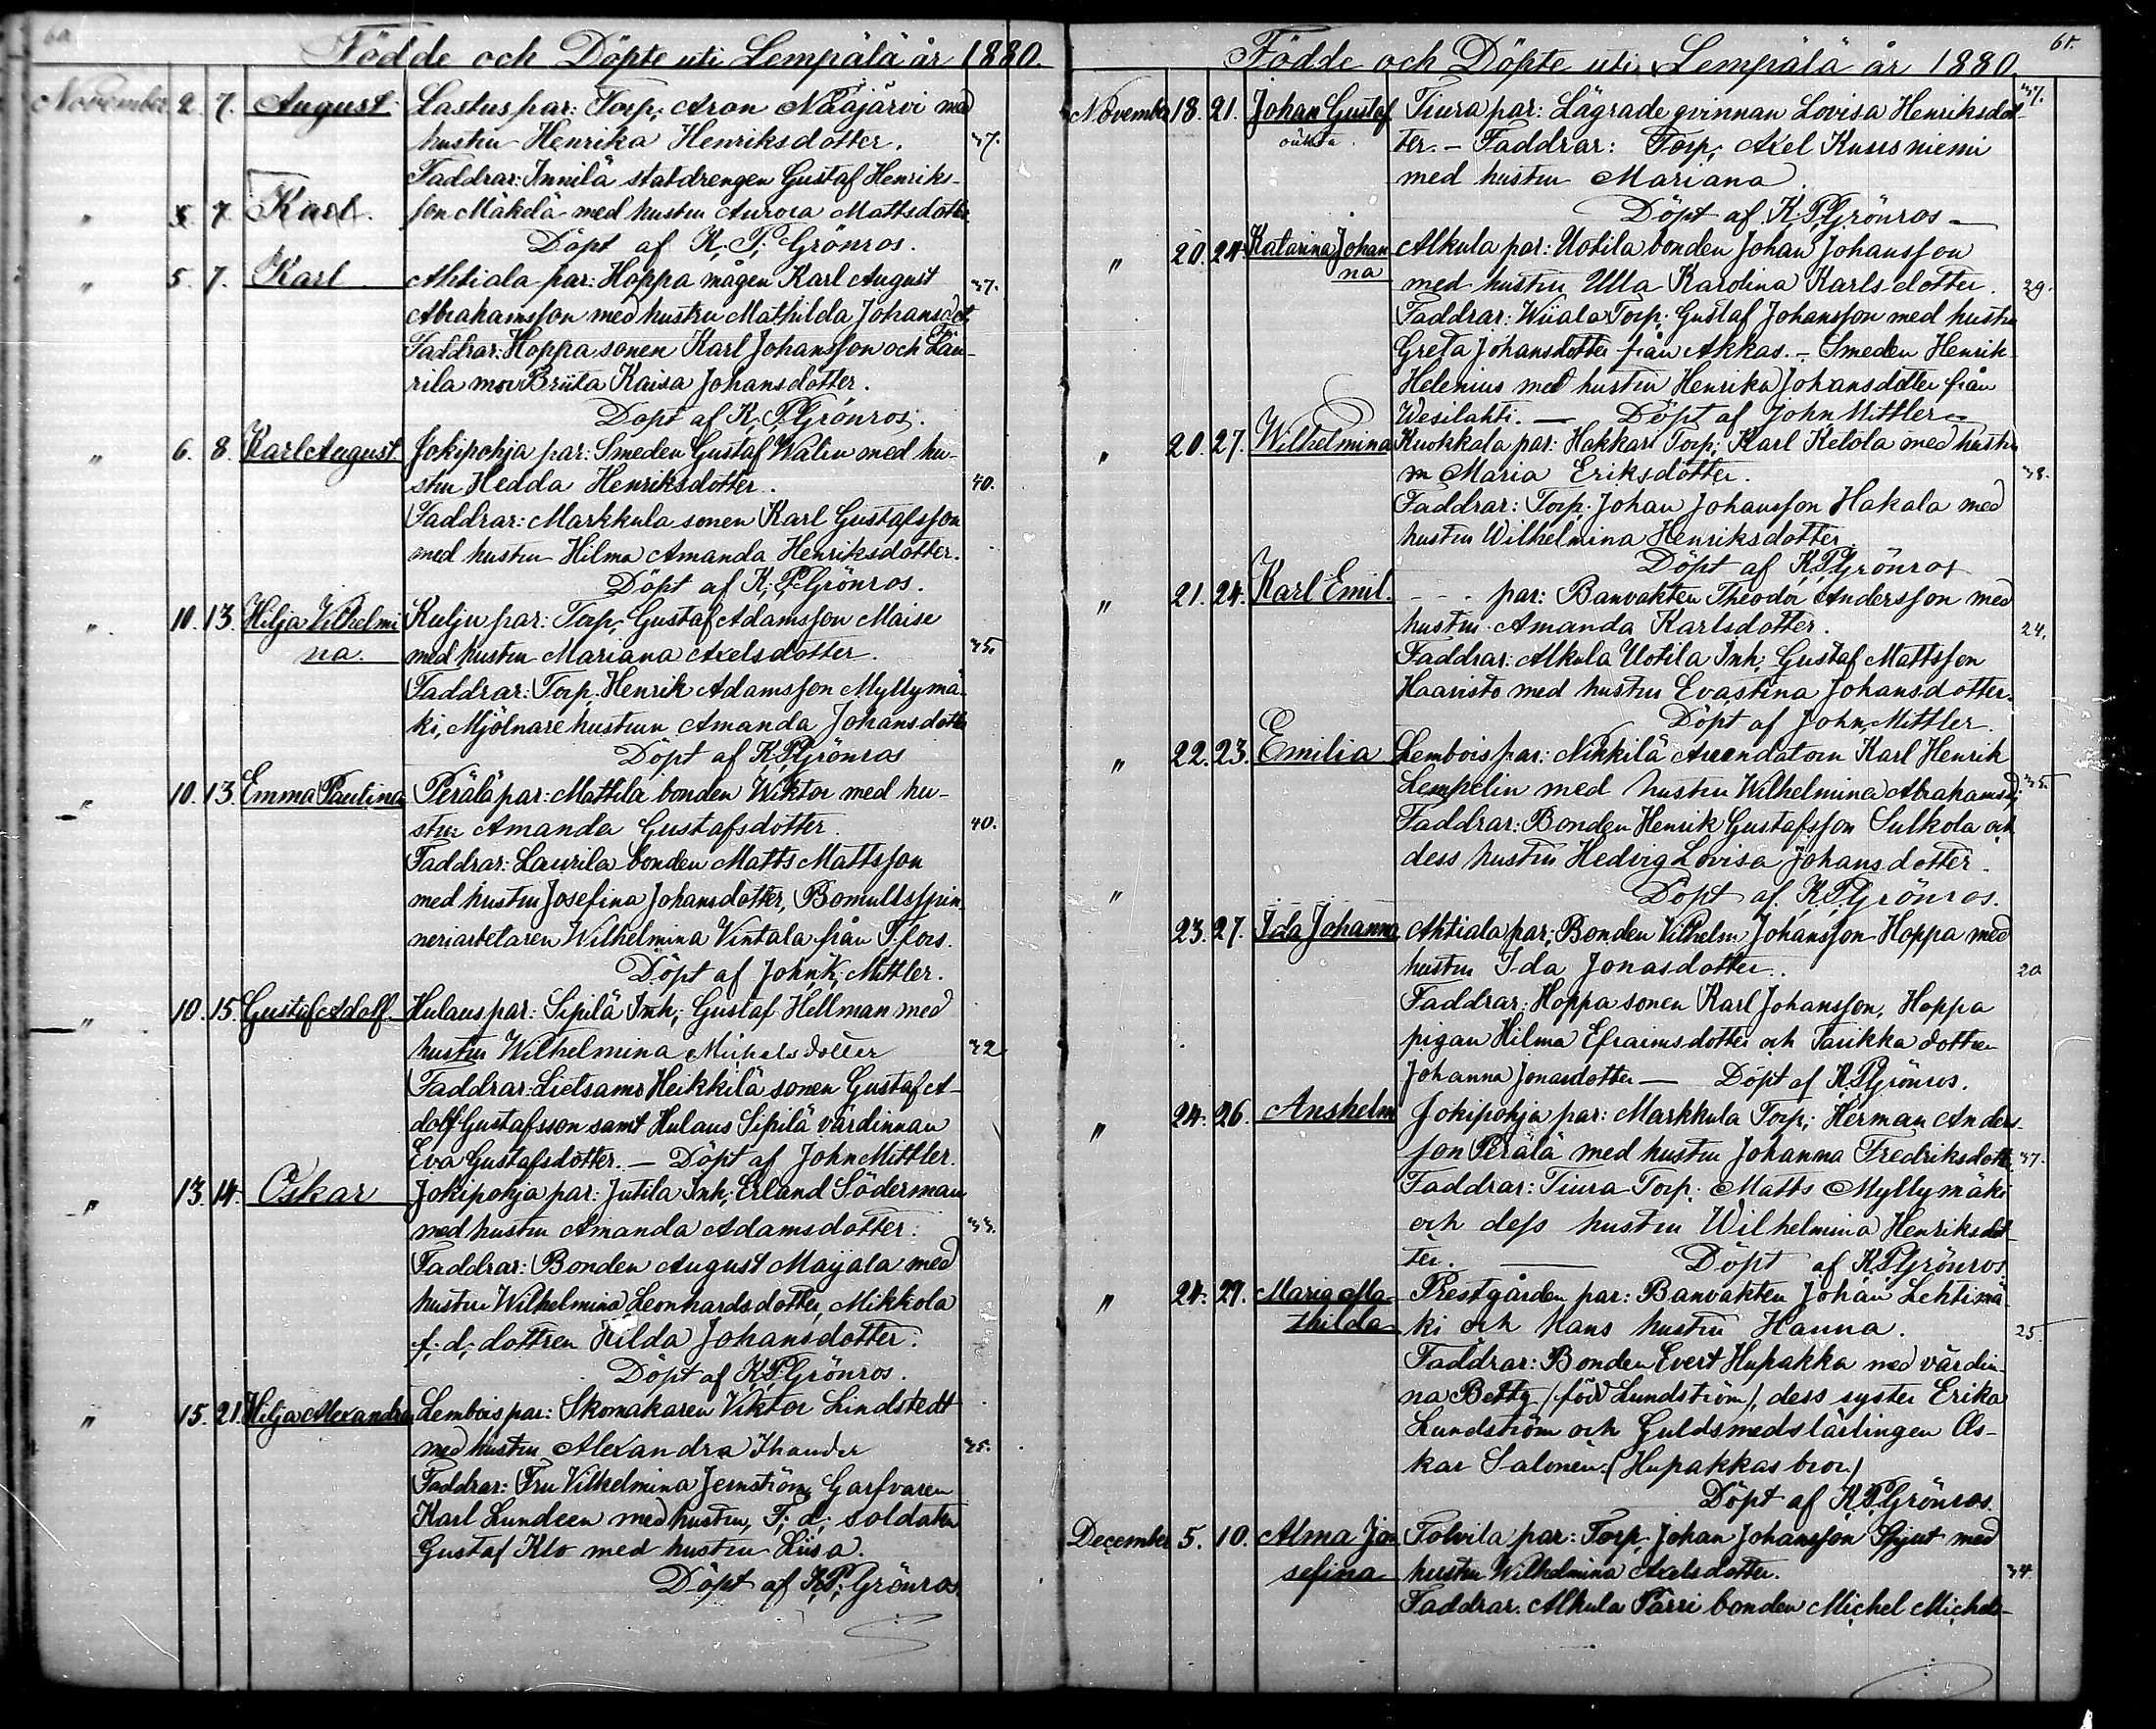 60
Födde och Döpte uti Lempälä år 1880.
November 2. 7. August. Lastus par: Torp; Aron Nääjärvi med
hustru Henrika Henriksdotter. 37.
Faddrar: Innilä statdrengen Gustaf Henriks-
" 5. 7. Karl. son Mäkelä med hustru Aurora Mattsdotter
Döpt af K; P; Grönros.
" 5. 7. Karl Ahtiala par: Hoppa mågen Karl August 37.
Abrahamsson med hustru Mathilda Johansdot
Faddrar: Hoppa sonen Karl Johansson och Lau-
rila mor Briita Kaisa Johansdotter.
Döpt af K; P; Grönros.
" 6. 8. Karl August Jokipohja par: Smeden Gustaf Walin med hu-
stru Hedda Henriksdotter. 40.
Faddrar: Markkula sonen Karl Gustafsson
med hustru Hilma Amanda Henriksdotter.
Döpt af K; P; Grönros.
" 10. 13. Hilja Vilhelmi Kulju par: Torp; Gustaf Adamsson Maise
na. med hustru Mariana Axelsdotter. 35.
Faddrar: Torp; Henrik Adamsson Myllymä-
ki, Mjölnare hustrun Amanda Johansdotter
Döpt af K; P; Grönros
" 10. 13. Emma Paulina Perälä par: Mattila bonden Wiktor med hu-
stru Amanda Gustafsdotter. 40.
Faddrar: Laurila bonden Matts Mattsson
med hustru Josefina Johansdotter, Bomullsspin-
neriarbetaren Wilhelmina Vintala från T:fors.
Döpt af John K; Mittler.
" 10. 15. Gustaf Adolf. Hulaus par: Sipilä Inh; Gustaf Hellman med
hustru Wilhelmina Michelsdotter 32
Faddrar: Lietsamo Heikkilä sonen Gustaf A-
dolf Gustafsson samt Hulaus Sipilä värdinnan
Eva Gustafsdotter. — Döpt af John Mittler.
" 13. 14. Oskar Jokipohja par: Jutila Inh; Erland Söderman
med hustru Amanda Adamsdotter. 33.
Faddrar: Bonden August Maijala med
hustru Wilhelmina Leonhardsdotter, Mikkola
f; d; dottren Hilda Johansdotter.
Döpt af K; P; Grönros.
" 15. 21. Hilja Alexandra Lembois par: Skomakaren Viktor Lindstedt
med hustru Alexandra Thander 35.
Faddrar: Fru Vilhelmina Jernström, Garfvaren
Karl Lundeen med hustru, F; d; soldaten
Gustaf Klo med hustru Liisa.
Döpt af K; P; Grönros.
61.
Födde och Döpte uti Lempälä år 1880.
November 18. 21. Johan Gustaf Tiura par: Lägrade qvinnan Lovisa Henriksdot 37.
oäkta. ter. — Faddrar: Torp; Axel Kuusniemi
med hustru Mariana.
Döpt af K; P; Grönros —
" 20. 24. Katarina Johan Alkula par: Uotila bonden Johan Johansson
na med hustru Ulla Karolina Karlsdotter. 29.
Faddrar: Wiiala Torp; Gustaf Johansson med hustru
Greta Johansdotter från Akkas. — Smeden Henrik
Helenius med hustru Henrika Johansdotter från
Wesilahti. — Döpt af John Mittler
" 20. 27. Wilhelmina Kuokkala par: Hakkari Torp; Karl Ketola med hustru
Maria Eriksdotter. 38.
Faddrar: Torp; Johan Johansson Hakala med
hustru Wilhelmina Henriksdotter
Döpt af K; P; Grönros
" 21. 24. Karl Emil. - - - par: Banvakten Theodor Andersson med
hustru Amanda Karlsdotter. 24.
Faddrar: Alkula Uotila Inh; Gustaf Mattsson
Haavisto med hustru Evastina Johansdotter.
Döpt af John Mittler.
" 22. 23. Emilia Lembois par: Nikkilä Arrendatorn Karl Henrik
Lempelin med hustru Wilhelmina Abrahamsd; 35.
Faddrar: Bonden Henrik Gustafsson Sulkola och
dess hustru Hedvig Lovisa Johansdotter.
" Döpt af K; P; Grönros.
23. 27. Ida Johanna Ahtiala par; Bonden Vilhelm Johansson Hoppa med
hustru Ida Jonasdotter. 20
Faddrar: Hoppa sonen Karl Johansson, Hoppa
pigan Hilma Efraimsdotter och Tarikka dottren
Johanna Jonasdotter — Döpt af K; P; Grönros.
" 24. 26. Anshelm Jokipohja par: Markkula Torp; Herman Anders-
son Perälä med hustru Johanna Fredriksdotter 37.
Faddrar: Tiura Torp; Matts Myllymäki
och dess hustru Wilhelmina Henriksdot-
ter. — Döpt af K; P; Grönros
" 24. 27. Maria Ma- Prestgården par: Banvakten Johan Lehtimä-
thilda ki och hans hustru Hanna. 25
Faddrar: Bonden Evert Hupakka med värdin-
na Betty (född Lundström), dess syster Erika
Lundström och Guldsmedslärlingen Os-
kar Salonen. (Hupakkas bror.)
Döpt af K; P; Grönros.
December 5. 10. Alma Jo- Tolvila par: Torp; Johan Johansson Spjut med
sefina hustru Wilhelmina Axelsdotter. 34
Faddrar. Alkula Pärri bonden Michel Michels-